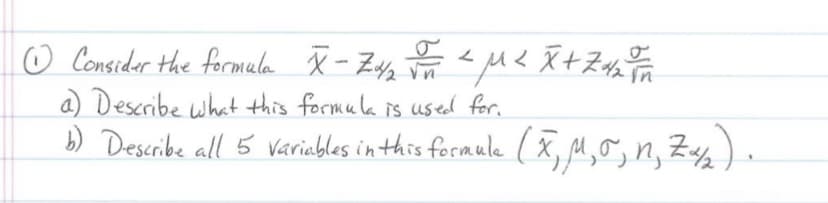 ① Consider the formula x̄ - Zα/2 σ/√n < μ < x̄ + Zα/2 σ/√n
a) Describe what this formula is used for.
b) Describe all 5 variables in this formula (x̄, μ, σ, n, Zα/2).